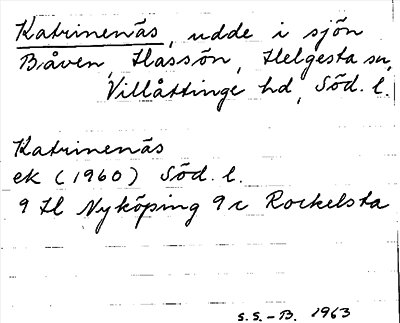 Katrinenäs, udde i sjön
Båven, Hassön, Helgesta sn,
Villåttinge hd, Söd. l.
Katrinenäs
ek (1960) Söd. l.
9 H Nyköping 9 c Rockelsta
S.S.-B. 1963